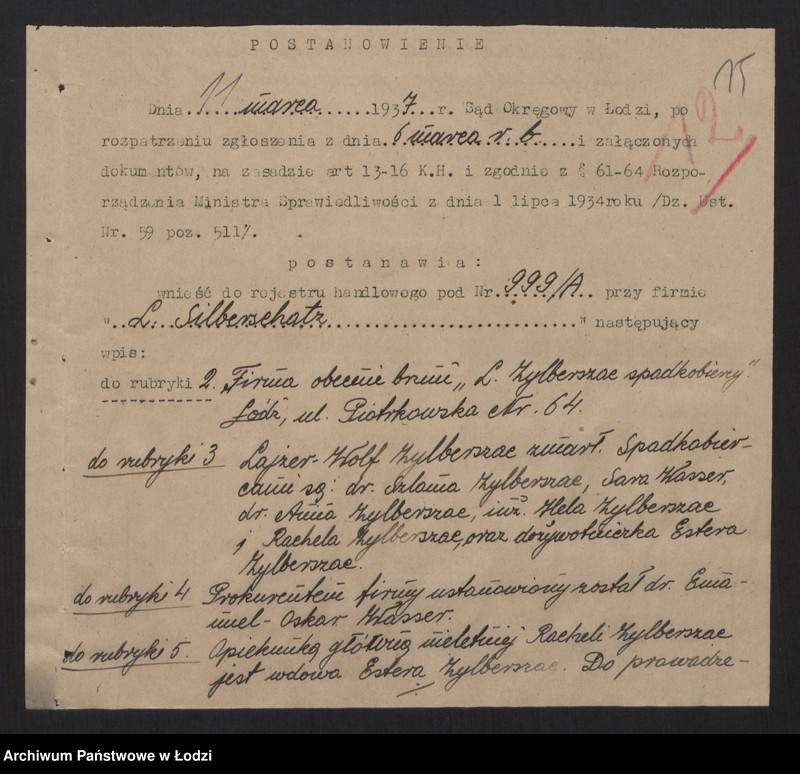 POSTANOWIENIE
15
12
Dnia 11 marca 1937 r. Sąd Okręgowy w Łodzi, po
rozpatrzeniu zgłoszenia z dnia 6 marca r. b. i załączonych
dokumentów, na zasadzie art 13-16 K.H. i zgodnie z § 61-64 Rozpo-
rządzenia Ministra Sprawiedliwości z dnia 1 lipca 1934roku /Dz. Ust.
Nr. 59 poz. 511/.
postanawia:
wnieść do rejestru handlowego pod Nr. 999/A przy firmie
"L. Silberschatz" następujący
wpis:
do rubryki 2. Firma obecnie brzmi „L. Zylberszac spadkobiercy".
Łódź, ul. Piotrkowska Nr. 64.
do rubryki 3 Lajzer-Wolf Zylberszac zmarł. Spadkobier-
cami są: dr. Szlama Zylberszac, Sara Wasser,
dr. Anna Zylberszac, inż. Hela Zylberszac
i Rachela Zylberszac, oraz dożywotniczka Estera
Zylberszac.
do rubryki 4 Prokurentem firmy ustanowiony został dr. Ema-
nuel-Oskar Wasser.
do rubryki 5. Opiekunką główną nieletniej Racheli Zylberszac
jest wdowa Estera Zylberszac. Do prowadze-
Archiwum Państwowe w Łodzi